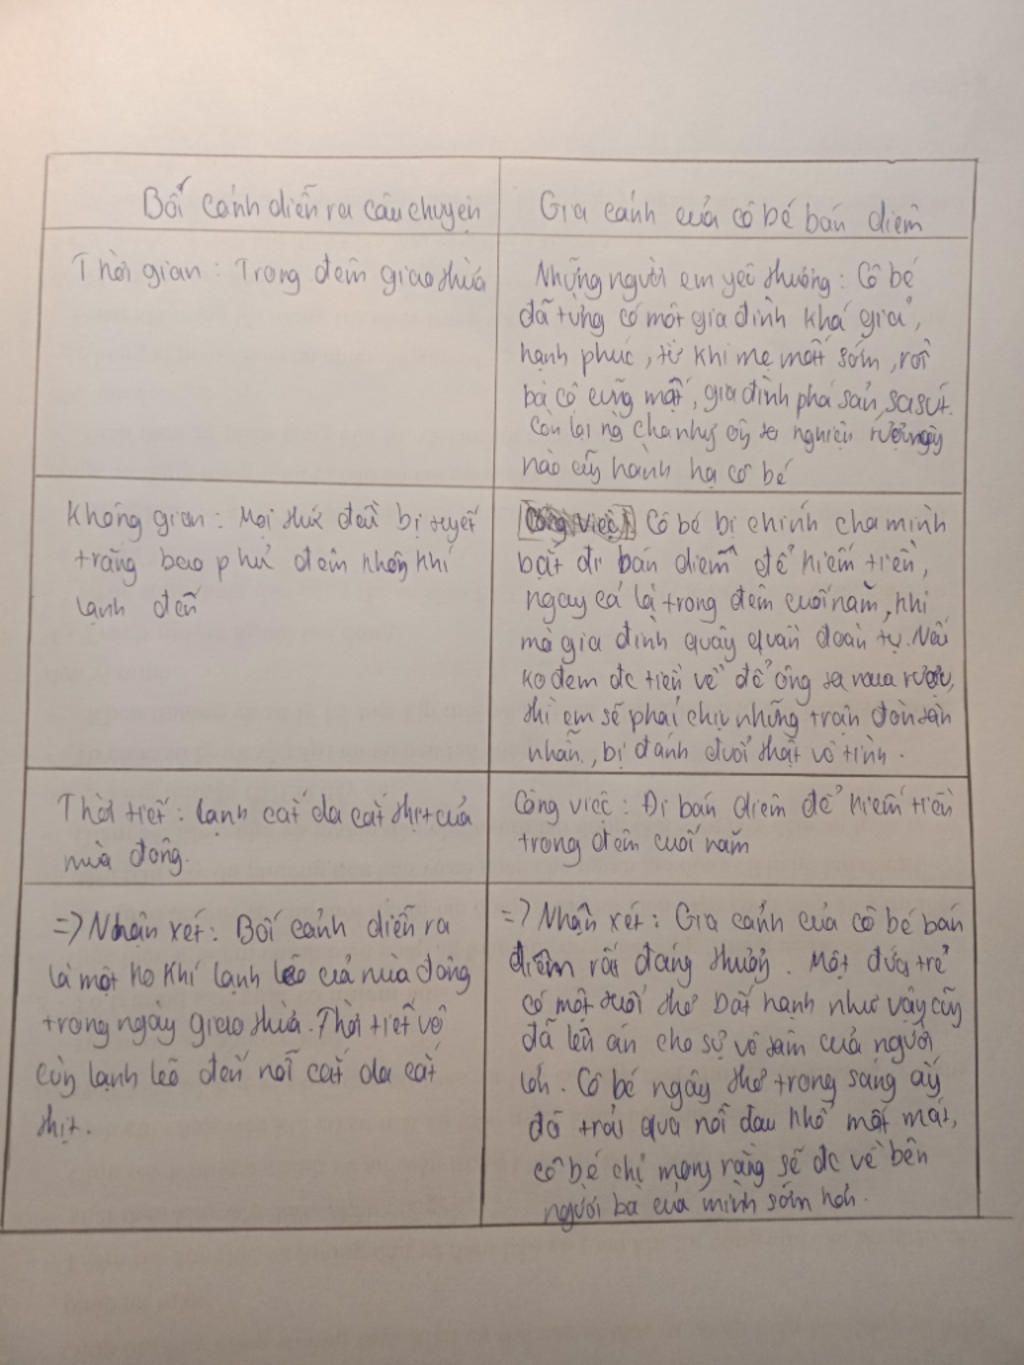 Bối cảnh diễn ra câu chuyện
Gia cảnh của cô bé bán diêm
Thời gian: Trong đêm giao thừa
Những người em yêu thương: Cô bé
đã từng có một gia đình khá giả,
hạnh phúc, từ khi mẹ mất sớm, rồi
bà cô cũng mất, gia đình phá sản, sa sút.
Còn lại ng cha nhg ôg ta nghiện rượu ngày
nào cũg hành hạ cô bé
Không gian: Mọi thứ đều bị tuyết
trắng bao phủ đêm không khí
lạnh đến
Công việc: Cô bé bị chính cha mình
bắt đi bán diêm để kiếm tiền,
ngay cả là trong đêm cuối năm, khi
mà gia đình quây quần đoàn tụ. Nếu
ko đem đc tiền về để ông ta mua rượu,
thì em sẽ phải chịu những trận đòn tàn
nhẫn, bị đánh đuổi thật vô tình.
Thời tiết: lạnh cắt da cắt thịt của
mùa đông.
Công việc: Đi bán diêm để kiếm tiền
trong đêm cuối năm
=> Nhận xét: Bối cảnh diễn ra
là một ko khí lạnh lẽo của mùa đông
trong ngày giao thừa. Thời tiết vô
cùg lạnh lẽo đến nỗi cắt da cắt
thịt.
=> Nhận xét: Gia cảnh của cô bé bán
diêm rất đáng thươg. Một đứa trẻ
có một tuổi thơ bất hạnh như vậy cũg
đã lên án cho sự vô tâm của người
lớn. Cô bé ngây thơ trong sáng ấy
đã trải qua nỗi đau khổ mất mát,
cô bé chỉ mong rằng sẽ đc về bên
người bà của mình sớm hơn.